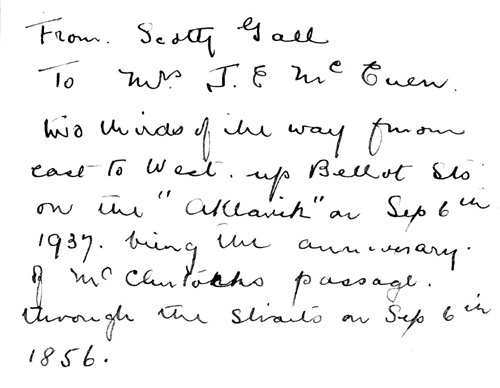 From. Scotty Gall
To Mrs J. E McEuen.
two thirds of the way from
east to West. up Bellot Sts
on the "Aklavik" on Sep 6th
1937. being the anniversary.
of McClintocks passage.
through the straits on Sep 6th
1856.